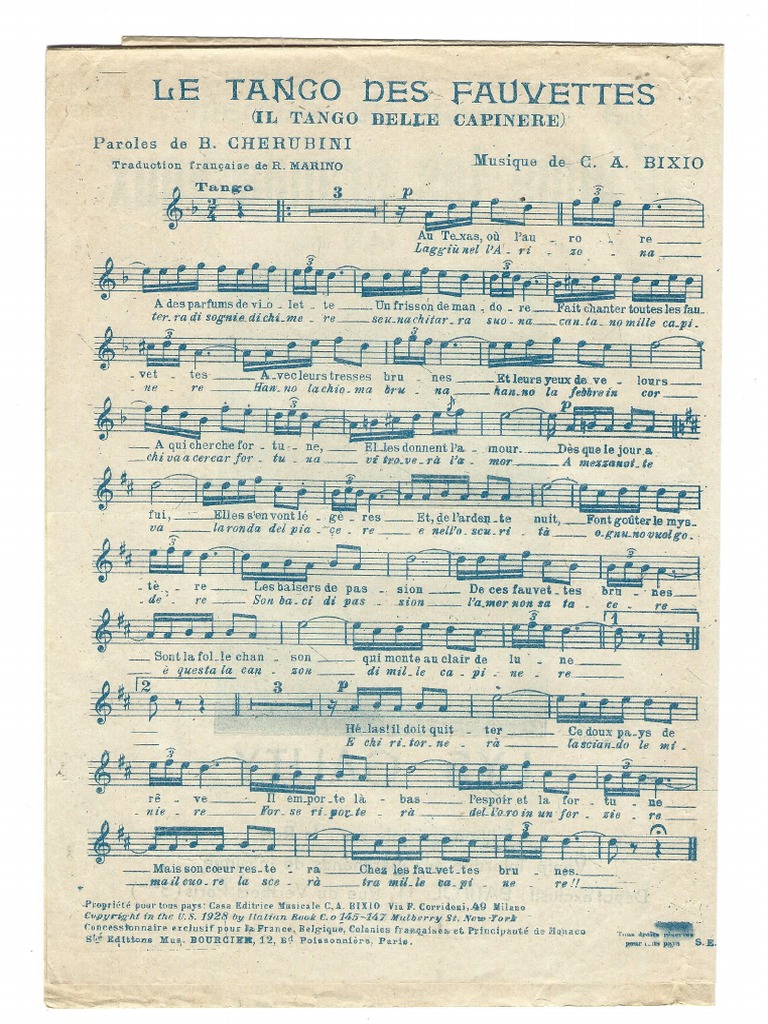 LE TANGO DES FAUVETTES
(IL TANGO DELLE CAPINERE)
Paroles de B. CHERUBINI
Traduction française de R. MARINO
Musique de C. A. BIXIO
Tango
3
p
3
Au Texas, où l'au - ro - re
Laggiù nel l'A - ri - zo - na
3
3
A des parfums de vi - o - let - te Un frisson de man - do - re Fait chanter toutes les fau -
ter - ra di sogni e di chi - me - re se u - na chitar - ra suo - na can - ta - no mille ca - pi -
3
3
vet - tes A - vec leurs tresses bru - nes Et leurs yeux de ve - lours
ne - re Han - no la chio - ma bru - na han - no la febbre in cor
3
p
A qui cherche for - tu - ne, El - les donnent l'a - mour. Dès que le jour a
chi va a cercar for - tu - na vi tro - ve - rà l'a - mor A mezzanot - te
3
fui, Elles s'en vont lé - gè - res Et, de l'arden - te nuit, Font goûter le mys -
va la ronda del pia - ce - re e nell'o - scu - ri - tà o - gnu - no vuol go -
3
3
tè - re Les baisers de pas - sion De ces fauvet - tes bru - nes
de - re Son ba - ci di pas - sion l'a - mor non sa ta - ce - re
3
1
Sont la fol - le chan - son qui monte au clair de lu - ne
è questa la can - zon di mil - le ca - pi - ne - re
2
3
p
3
Hé - las! il doit quit - ter Ce doux pa - ys de
E chi ri - tor - ne - rà lascian - do le mi -
3
3
rê - ve Il em - por - te là - bas l'espoir et la for - tu - ne
nie - re For - se ri - por - te - rà del - l'o - ro in un for - zie - re
3
Mais son cœur res - te - ra Chez les fau - vet - tes bru - nes.
ma il cuo - re la sce - rà tra mil - le ca - pi - ne - re!!
Propriété pour tous pays: Casa Editrice Musicale C. A. BIXIO Via F. Corridoni, 49 Milano
Copyright in the U.S. 1928 by Italian Book C.o 145-147 Mulberry St. New-York
Concessionnaire exclusif pour la France, Belgique, Colonies françaises et Principauté de Monaco
Sté Editions Mus. BOURCIER, 12, Bd Poissonnière, Paris.
Tous droits réservés
pour tous pays
S. E.